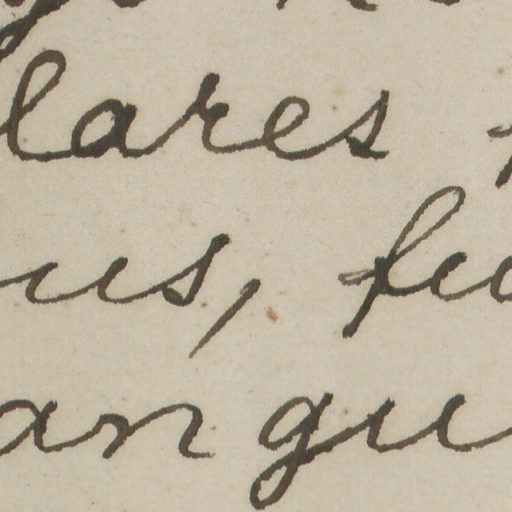 lares
us, fu
an gu